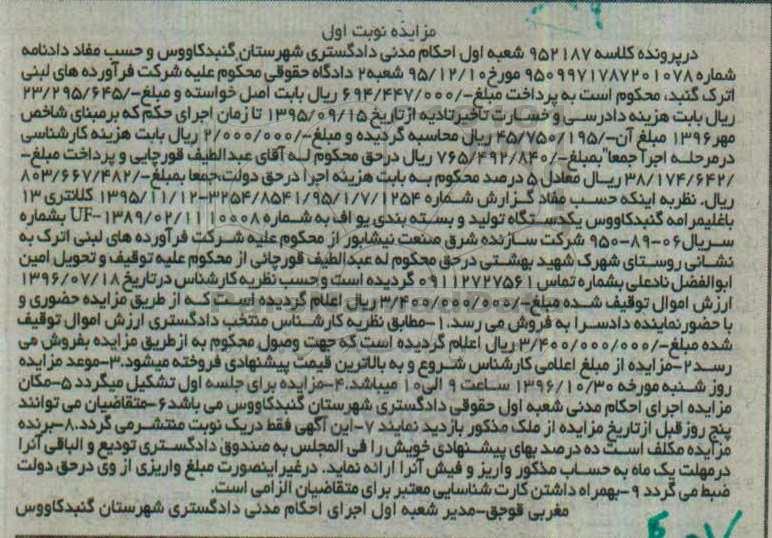 مزایده نوبت اول
در پرونده کلاسه ۹۵۲۱۸۷ شعبه اول احکام مدنی دادگستری شهرستان گنبدکاووس و حسب مفاد دادنامه
شماره ۹۵۰۹۹۷۱۷۸۷۲۰۱۰۷۸ مورخ ۹۵/۱۲/۱۰ شعبه ۲ دادگاه حقوقی محکوم علیه شرکت فرآورده های لبنی
اترک گنبد، محکوم است به پرداخت مبلغ-/۶۹۴/۴۴۷/۰۰۰ ریال بابت اصل خواسته و مبلغ-/۲۳/۲۹۵/۶۴۵
ریال بابت هزینه دادرسی و خسارت تاخیر تادیه از تاریخ ۱۳۹۵/۰۹/۱۵ تا زمان اجرای حکم که بر مبنای شاخص
مهر ۱۳۹۶ مبلغ آن-/۴۵/۷۵۰/۱۹۵ ریال محاسبه گردیده و مبلغ-/۲/۰۰۰/۰۰۰ ریال بابت هزینه کارشناسی
در مرحله اجرا جمعا" بمبلغ-/۷۶۵/۴۹۲/۸۴۰ ریال در حق محکوم له آقای عبدالطیف قورچایی و پرداخت مبلغ-
/۳۸/۱۷۴/۶۴۲ ریال معادل ۵ درصد محکوم به بابت هزینه اجرا در حق دولت،جمعا بمبلغ-/۸۰۳/۶۶۷/۴۸۲
ریال. نظر به اینکه حسب مفاد گزارش شماره ۳۲۵۴/۸۵۴۱/۹۵/۱/۷/۱۲۵۴-۱۳۹۵/۱۱/۱۲ کلانتری ۱۳
باغلیمرامه گنبدکاووس یکدستگاه تولید و بسته بندی یو اف به شماره ۱۰۰۰۸ ۱۳۸۹/۰۲/۱۱-UF بشماره
سریال ۰۶-۸۹-۹۵۰ شرکت سازنده شرق صنعت نیشابور از محکوم علیه شرکت فرآورده های لبنی اترک به
نشانی روستای شهرک شهید بهشتی در حق محکوم له عبدالطیف قورچائی از محکوم علیه توقیف و تحویل امین
ابوالفضل نادعلی بشماره تماس ۰۹۱۱۲۷۲۷۵۶۱ گردیده است و حسب نظریه کارشناس در تاریخ ۱۳۹۶/۰۷/۱۸
ارزش اموال توقیف شده مبلغ-/۳/۴۰۰/۰۰۰/۰۰۰ ریال اعلام گردیده است که از طریق مزایده حضوری و
با حضور نماینده دادسرا به فروش می رسد.۱-مطابق نظریه کارشناس منتخب دادگستری ارزش اموال توقیف
شده مبلغ-/۳/۴۰۰/۰۰۰/۰۰۰ ریال اعلام گردیده است که جهت وصول محکوم به از طریق مزایده بفروش می
رسد۲-مزایده از مبلغ اعلامی کارشناس شروع و به بالاترین قیمت پیشنهادی فروخته میشود.۳-موعد مزایده
روز شنبه مورخه ۱۳۹۶/۱۰/۳۰ ساعت ۹ الی ۱۰ میباشد.۴-مزایده برای جلسه اول تشکیل میگردد ۵-مکان
مزایده اجرای احکام مدنی شعبه اول حقوقی دادگستری شهرستان گنبدکاووس می باشد۶-متقاضیان می توانند
پنج روز قبل از تاریخ مزایده از ملک مذکور بازدید نمایند ۷-این آگهی فقط در یک نوبت منتشر می گردد.۸-برنده
مزایده مکلف است ده درصد بهای پیشنهادی خویش را فی المجلس به صندوق دادگستری تودیع و الباقی آنرا
در مهلت یک ماه به حساب مذکور واریز و فیش آنرا ارائه نماید. در غیر اینصورت مبلغ واریزی از وی در حق دولت
ضبط می گردد ۹-بهمراه داشتن کارت شناسایی معتبر برای متقاضیان الزامی است.
مغربی قوجق-مدیر شعبه اول اجرای احکام مدنی دادگستری شهرستان گنبدکاووس